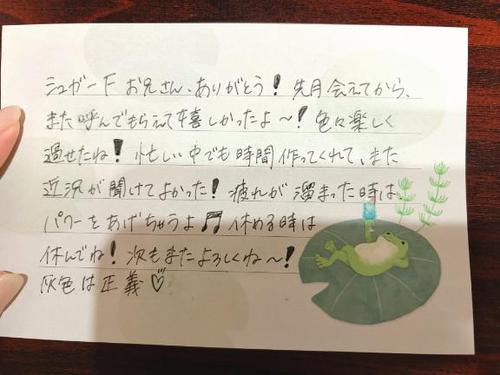 シュガーF お兄さん、ありがとう！ 先月会えてから、
また呼んでもらえて嬉しかったよ〜！ 色々楽しく
過せたね！ 忙しい中でも時間作ってくれて、また
近況が聞けてよかった！ 疲れが溜まった時は、
パワーをあげちゃうよ♫ 休める時は
休んでね！ 次もまたよろしくね〜！
灰色は正義♡